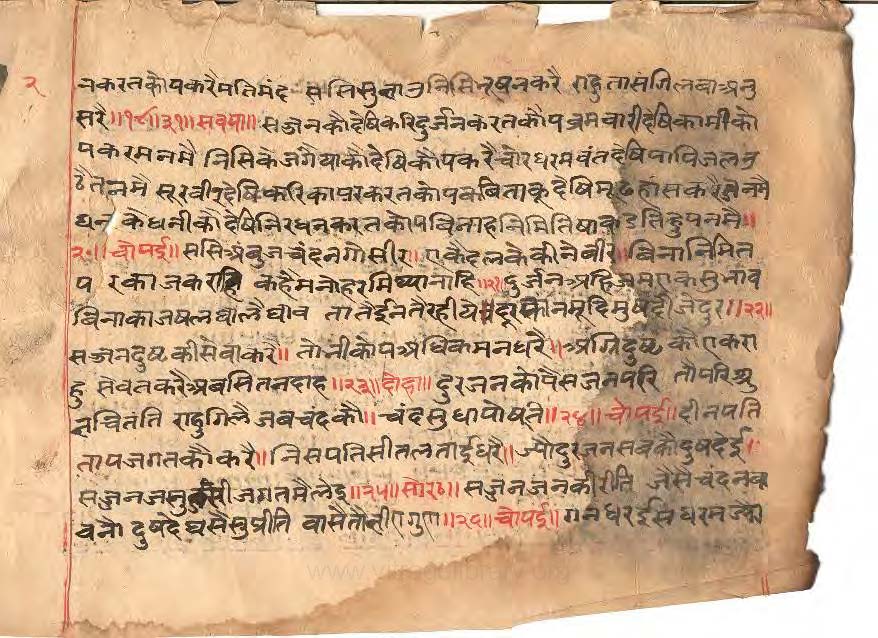 २
नकरतकोपकरैमतिमंद ससिसु निसि करै राहुतासगिलवाअनु
सरै॥१९॥३१॥सवैया॥सज्जनकौदेषिकरिदुर्जनकरतकोप ब्रमचारीदेषिकामीको
पकरमनमै निसिकेजगैयाकौदेषिकौपकरैचोर धरमवंतदेषिपापीजलत
हैतनमै सूरवीरदेषिकरिकाएरकरतकोप कविताकूदेषिमूढहांसकरै
धनकेधनीकौदेषिनिरधनकरतकोप बिनाहनिमिति
२०॥चौपई॥ससिअंबुजचंदनगोसीर॥एकैदलकेकीनेबीर॥बिनानिमित
परकाजकराहि कहैमनोहरमिथ्यानाहि॥२१॥दुर्जनअहिजमएकसुभाव
बिनाकाजषलघालैघाव तातैईनतैरहीये दुर॥२२॥
सज्जनदुष्टकीसेवाकरै॥तोनीकोपअधिकमनधरै॥अगिदुष्टकौएकरा
हु सेवतकरैअवसितनदाह॥२३॥दोहा॥दुरजनकोपैसजनपरि तौपरि
नचितंति राहुगिलैजबचंदकौ॥चंदसुधापोषंति॥२४॥चौपई॥दीनपति
तापजगतकौकरै॥निसपतिसीतलताईधरै॥ज्यौदुरजनसबकौदुषदेई॥
सज्जनजसु जगतमैलेइ॥२५॥सोरठा॥सज्जनजनकीरीति जैसैचंदनबा
वनो दुषदेघसैसुप्रीति बासैतौ ॥२६॥चौपई॥गनधरईसधरमज्यो
www. .org